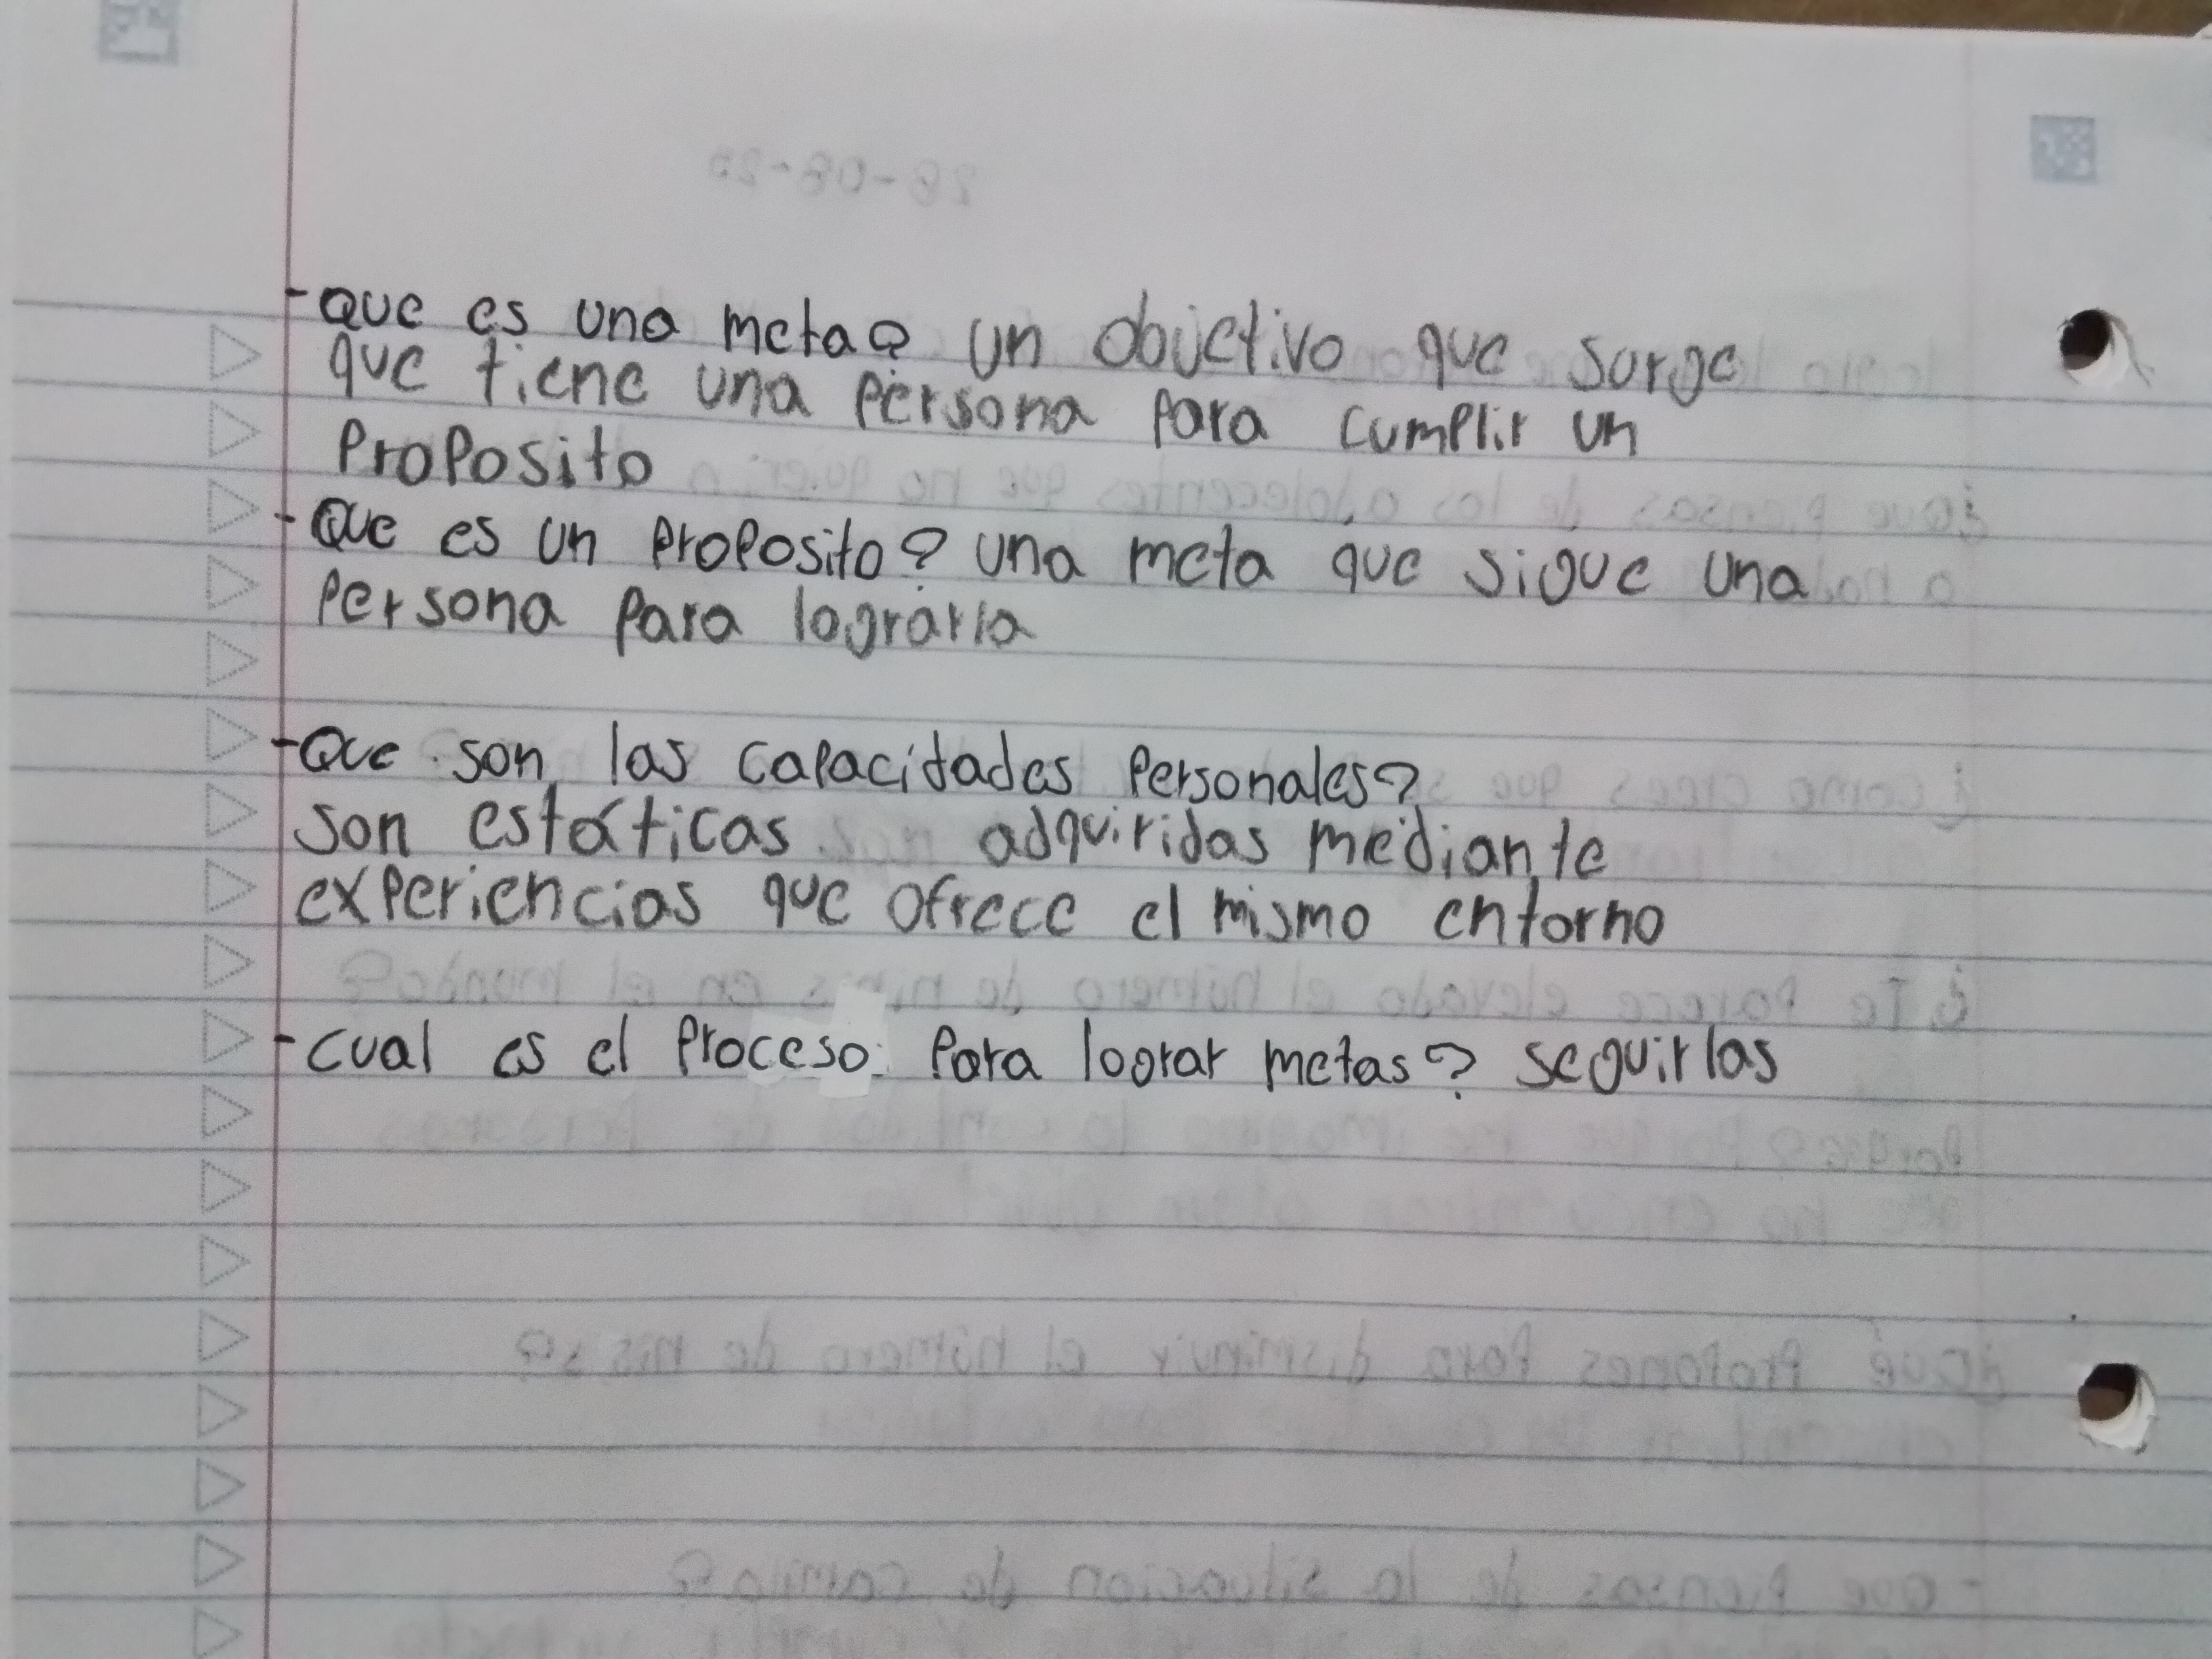 -que es una meta? un objetivo que surge
que tiene una persona para cumplir un
proposito
-Que es un proposito? una meta que sigue una
persona para lograrla
-Que son las capacidades personales?
son estáticas adquiridas mediante
experiencias que ofrece el mismo entorno
-cual es el proceso para lograr metas? seguirlas